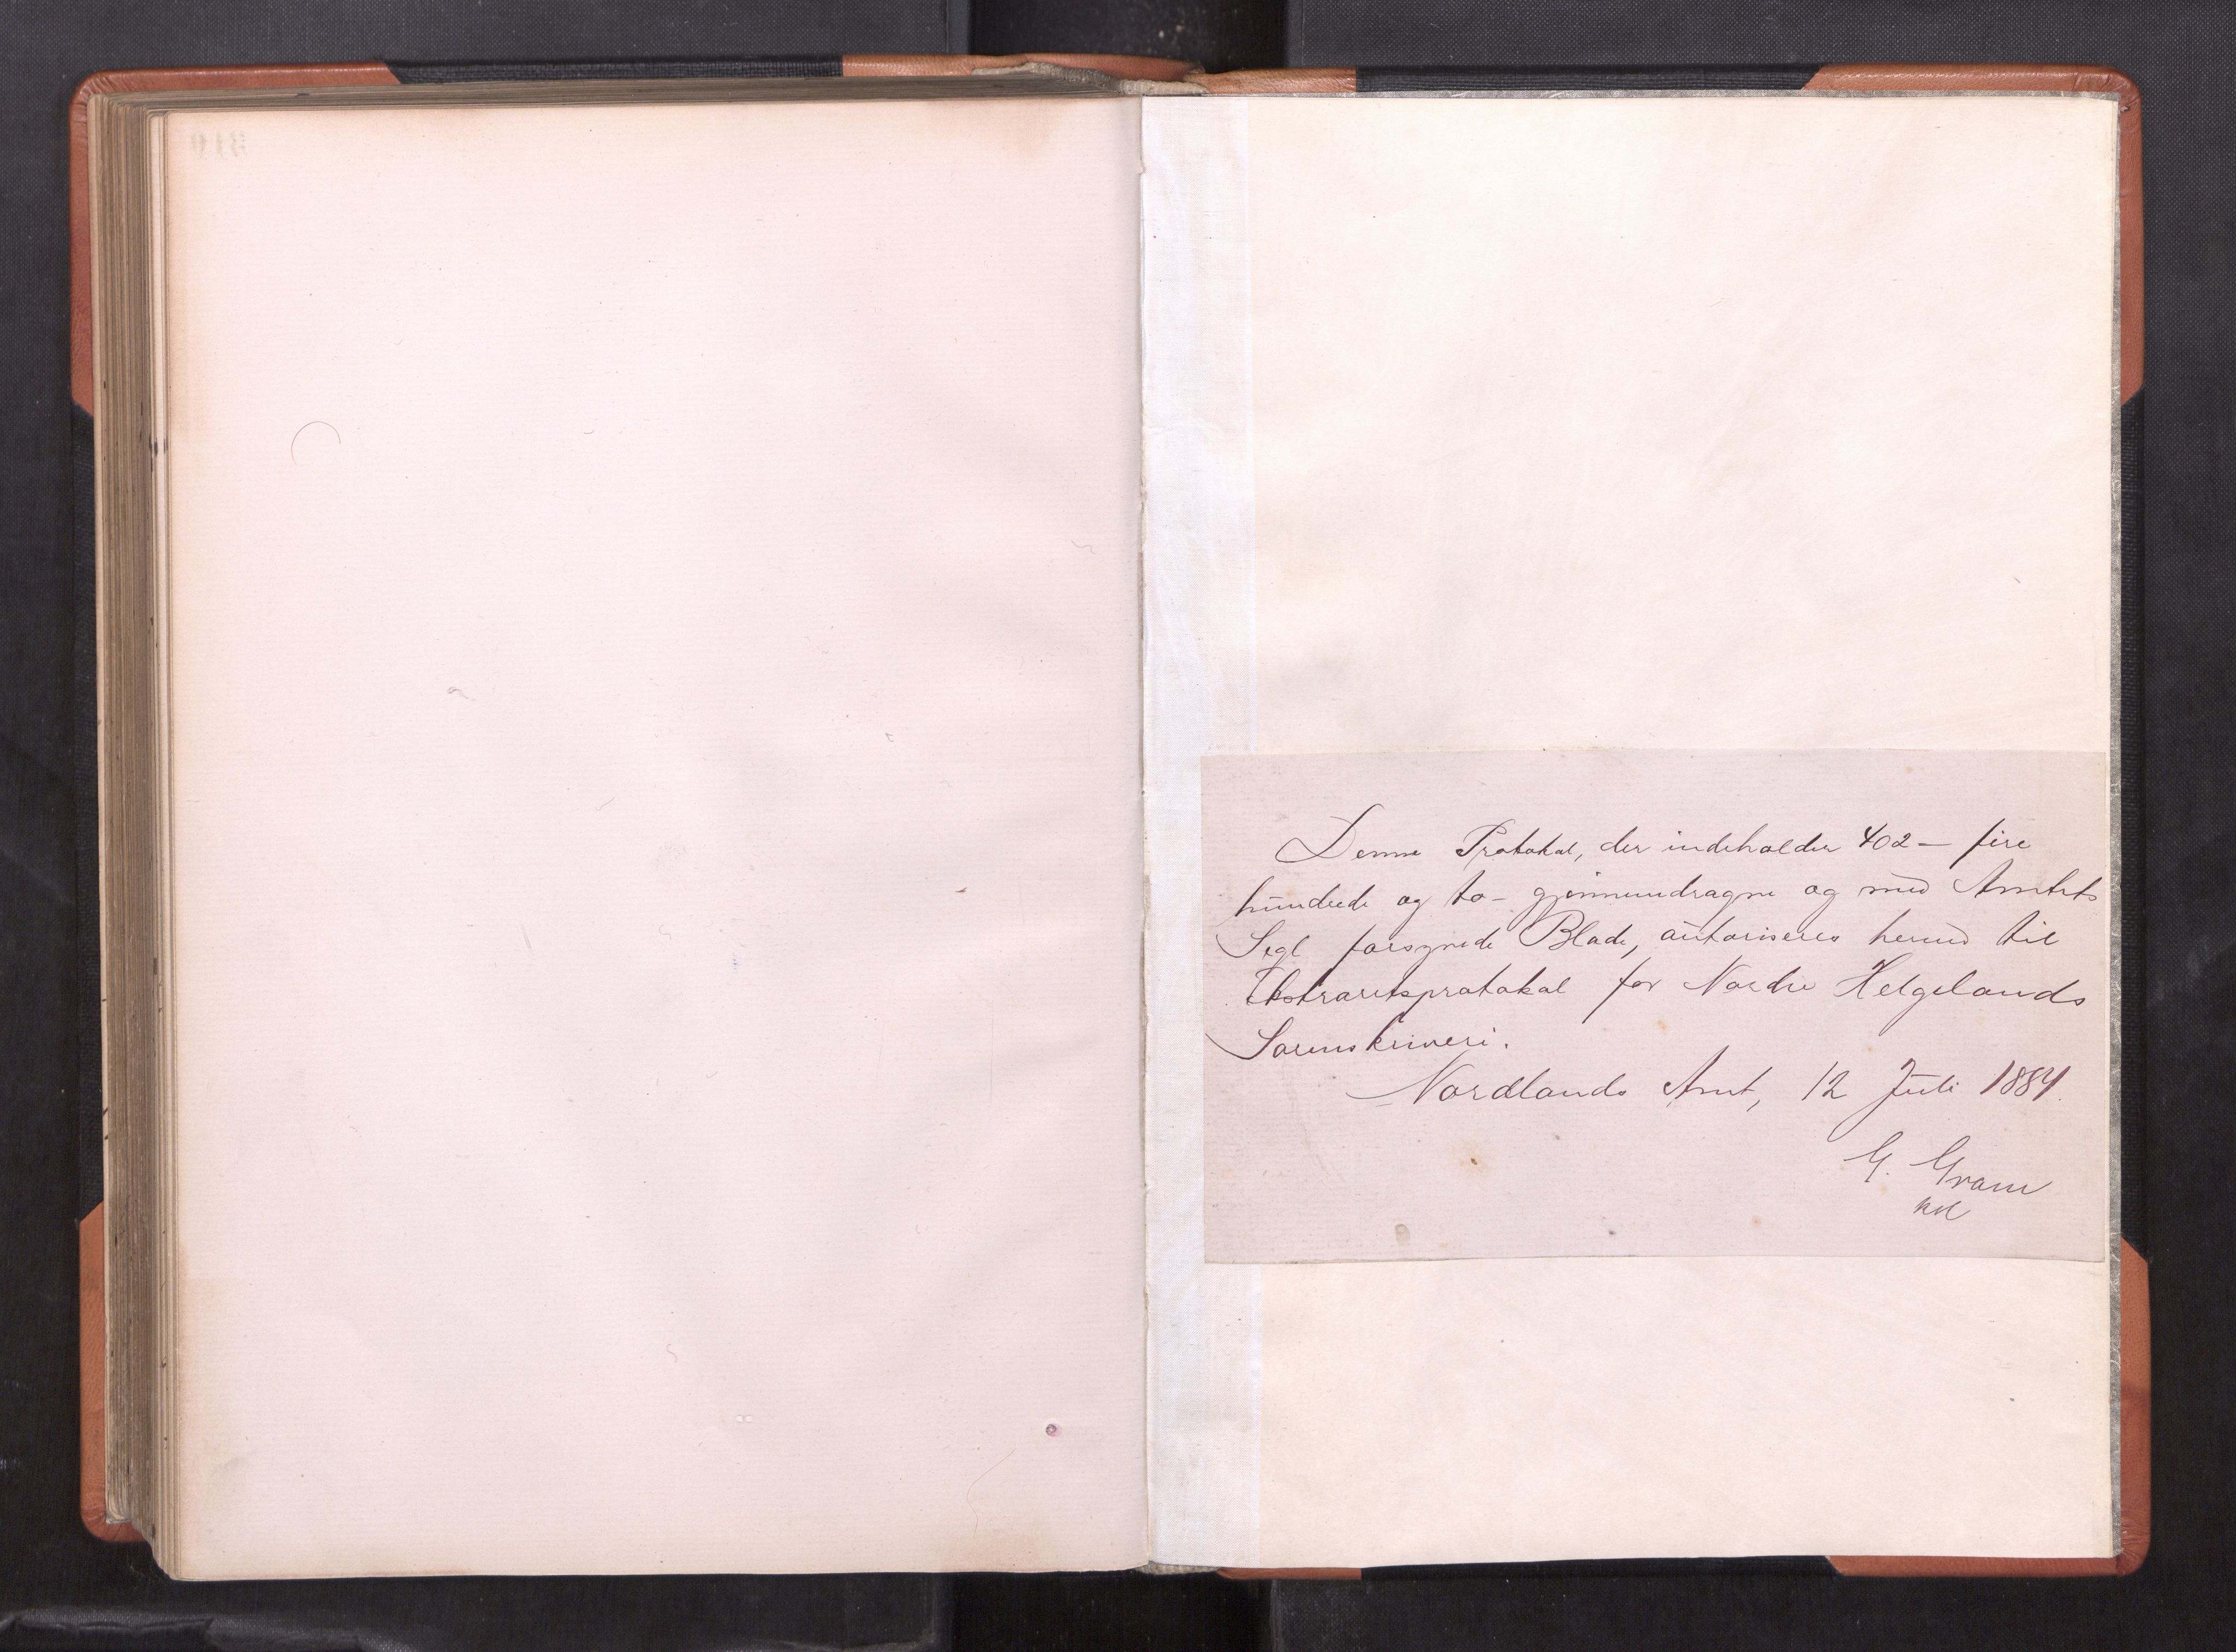 Denne Protokol, der indeholder 402 – fire
hundrede og to – gjennemdragne og med Amtets
Segl forsynede Blade, autoriseres herved til
Ekstraretsprotokol for Nordre Helgelands
Sorenskriveri.
Nordlands Amt, 12 Juli 1884.
G. Gram